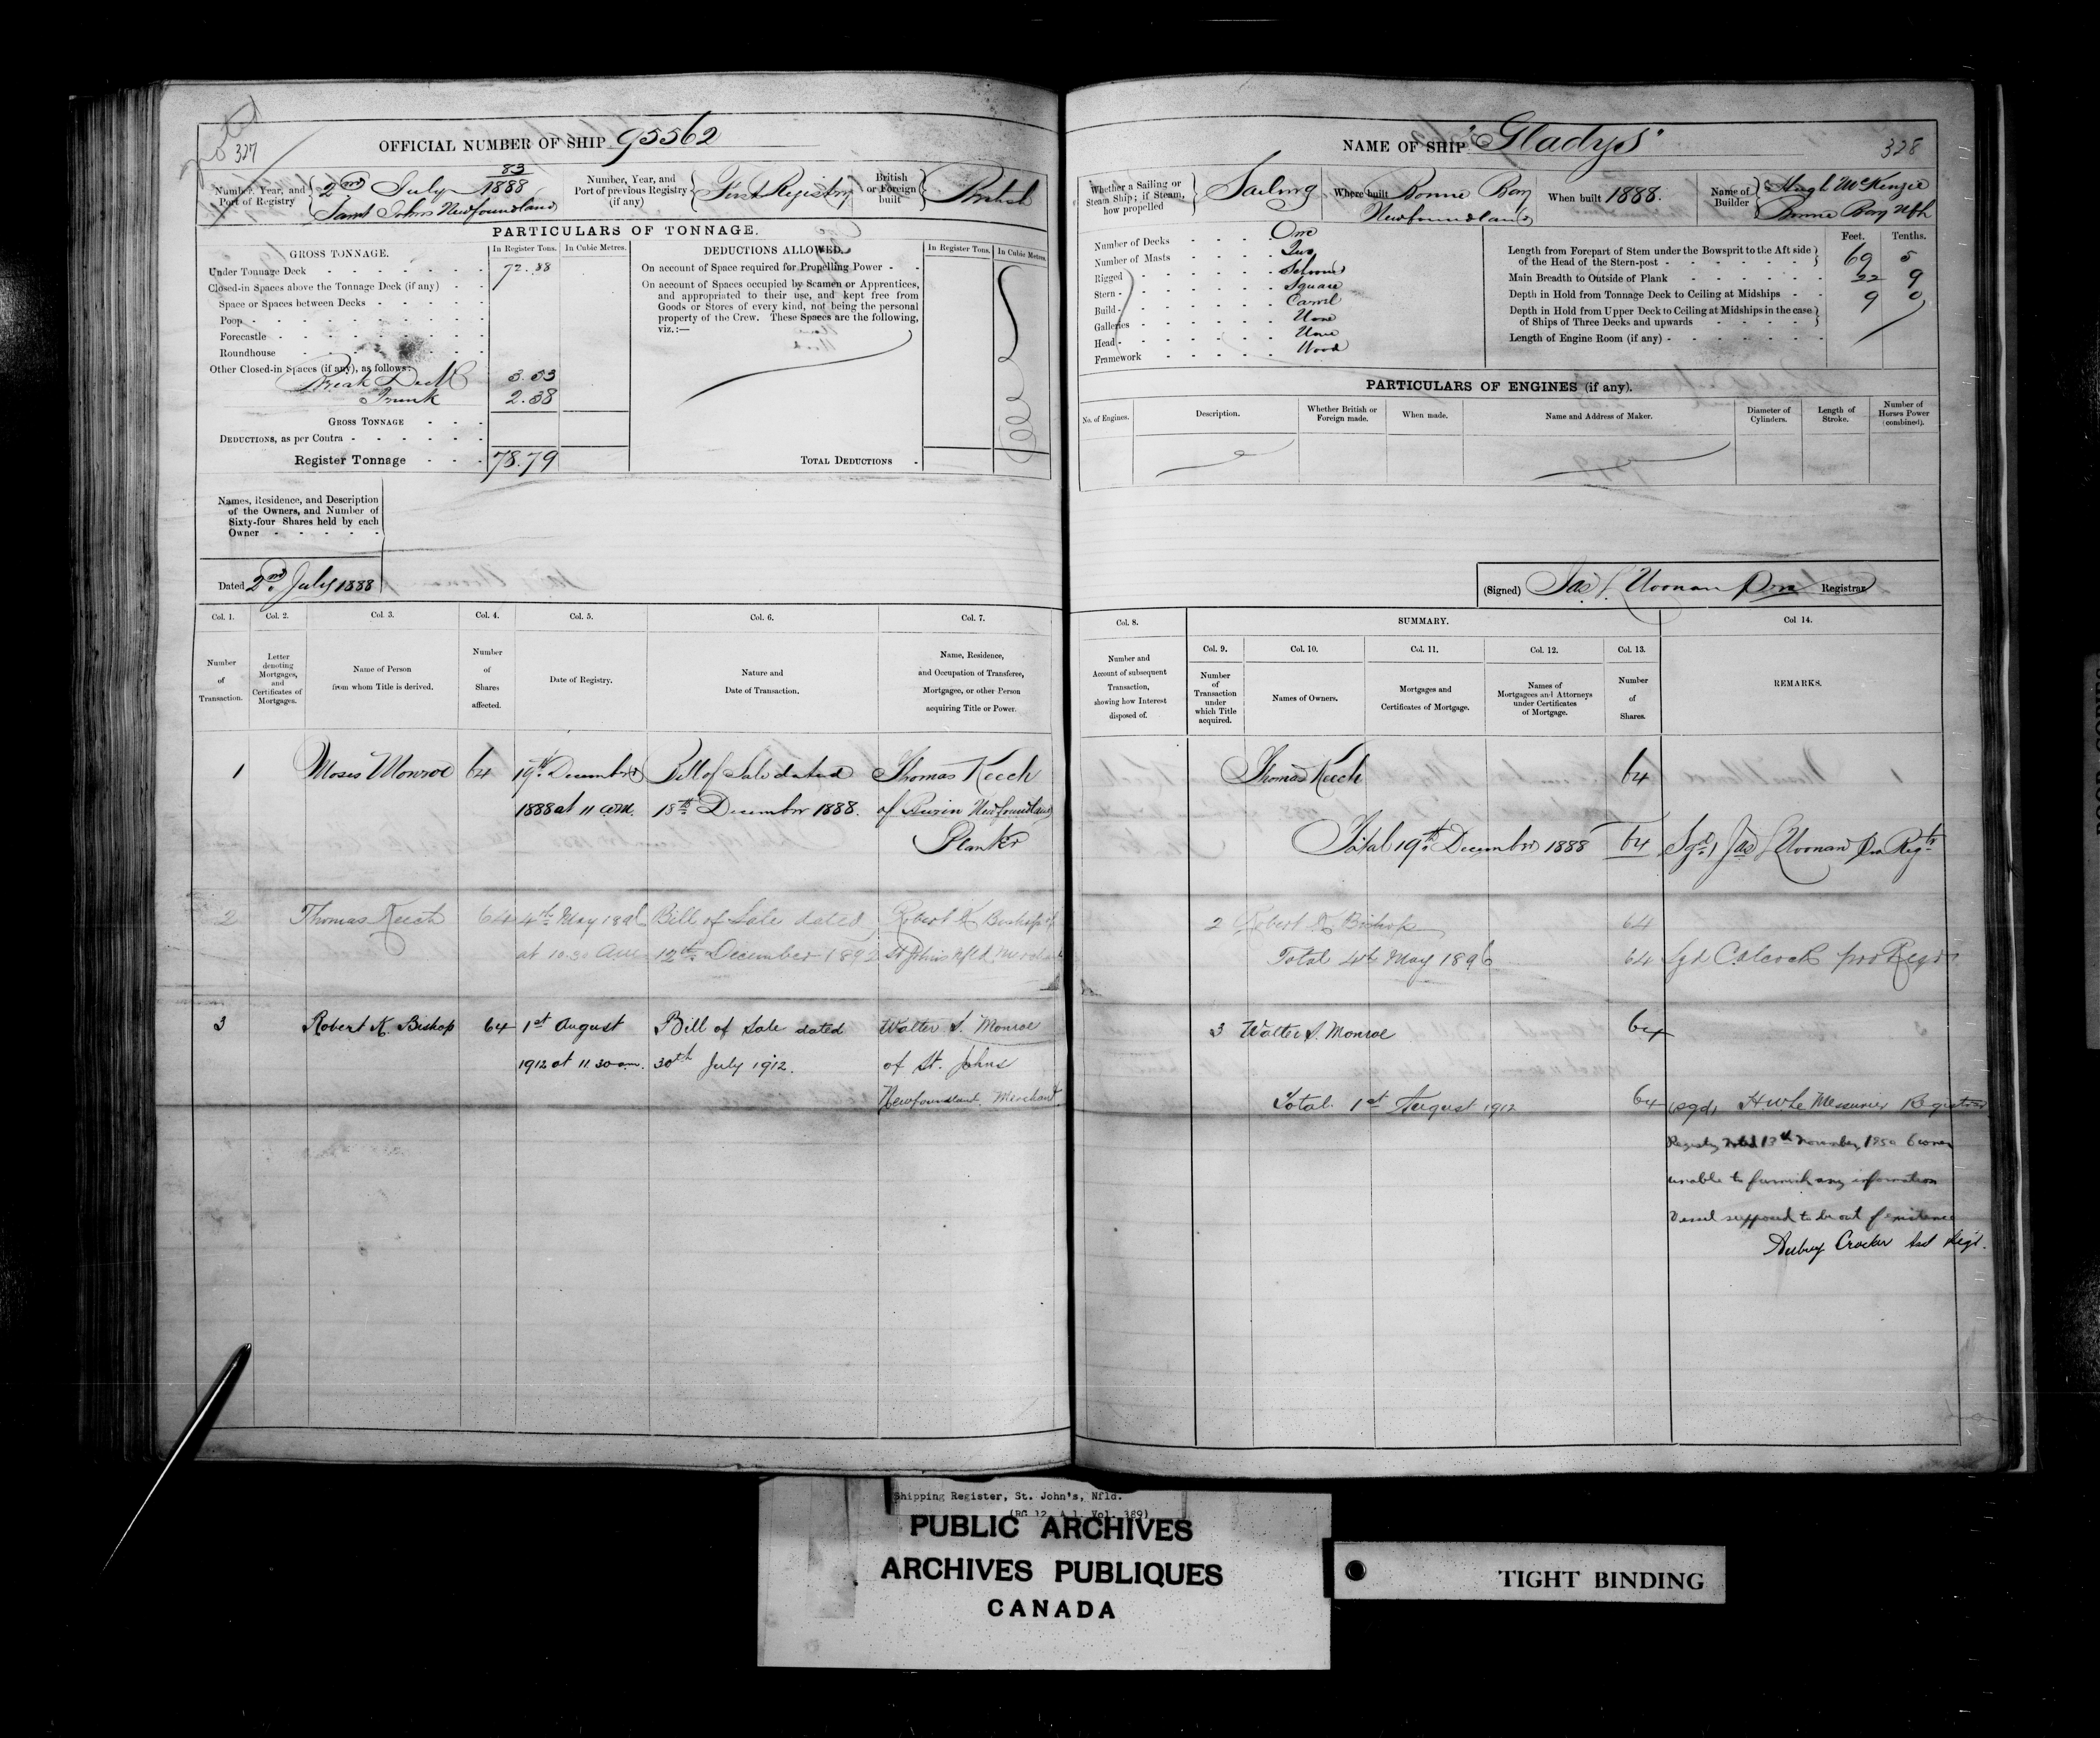 327
OFFICIAL NUMBER OF SHIP 95562
Number, Year, and Port of Registry
83
2nd July 1888
Saint Johns Newfoundland
Number, Year, and Port of previous Registry (if any)
First Registry
British or Foreign built
British
PARTICULARS OF TONNAGE.
GROSS TONNAGE.
In Register Tons.
In Cubic Metres.
Under Tonnage Deck 72.88
Closed-in Spaces above the Tonnage Deck (if any)
Space or Spaces between Decks
Poop
Forecastle
Roundhouse
Other Closed-in Spaces (if any), as follows:
Break Deck 3.53
Trunk 2.38
GROSS TONNAGE
DEDUCTIONS, as per Contra
Register Tonnage 78.79
DEDUCTIONS ALLOWED.
In Register Tons.
In Cubic Metres.
On account of Space required for Propelling Power
On account of Spaces occupied by Seamen or Apprentices,
and appropriated to their use, and kept free from
Goods or Stores of every kind, not being the personal
property of the Crew. These Spaces are the following,
viz.:—
TOTAL DEDUCTIONS
Names, Residence, and Description
of the Owners, and Number of
Sixty-four Shares held by each
Owner
Dated 2nd July 1888
Col. 1.
Number of Transaction.
Col. 2.
Letter denoting Mortgages, and Certificates of Mortgages.
Col. 3.
Name of Person from whom Title is derived.
Col. 4.
Number of Shares affected.
Col. 5.
Date of Registry.
Col. 6.
Nature and Date of Transaction.
Col. 7.
Name, Residence, and Occupation of Transferee, Mortgagee, or other Person acquiring Title or Power.
1 Moses Monroe 64 19th December Bill of Sale dated Thomas Keech
1888 at 11 a.m. 18th December 1888. of Burin Newfoundland
Planter
2 Thomas Keech 64 4th May 1896 Bill of Sale dated Robert K Bishop of
at 10.30 am 12th December 1892 St Johns Nfld Merchant
3 Robert K. Bishop 64 1st August Bill of Sale dated Walter S. Monroe
1912 at 11.30 am. 30th July 1912. of St. Johns
Newfoundland. Merchant.
NAME OF SHIP "Gladys"
328
Whether a Sailing or Steam Ship; if Steam, how propelled
Sailing
Where built
Bonne Bay
Newfoundland
When built 1888.
Name of Builder
Hugh McKenzie
Bonne Bay Nfld
Number of Decks One
Number of Masts Two
Rigged Schooner
Stern Square
Build Carvel
Galleries None
Head None
Framework Wood
Feet. Tenths.
Length from Forepart of Stem under the Bowsprit to the Aft side
of the Head of the Stern-post 69 5
Main Breadth to Outside of Plank 22 9
Depth in Hold from Tonnage Deck to Ceiling at Midships 9 0
Depth in Hold from Upper Deck to Ceiling at Midships in the case
of Ships of Three Decks and upwards
Length of Engine Room (if any)
PARTICULARS OF ENGINES (if any).
No. of Engines.
Description.
Whether British or Foreign made.
When made.
Name and Address of Maker.
Diameter of Cylinders.
Length of Stroke.
Number of Horses Power (combined).
(Signed) Jas L Noonan Pro Registrar
Col. 8.
Number and Account of subsequent Transaction, showing how Interest disposed of.
SUMMARY.
Col. 9.
Number of Transaction under which Title acquired.
Col. 10.
Names of Owners.
Col. 11.
Mortgages and Certificates of Mortgage.
Col. 12.
Names of Mortgagees and Attorneys under Certificates of Mortgage.
Col. 13.
Number of Shares.
Col 14.
REMARKS.
Thomas Keech 64
Total 19th December 1888 64 Sgd Jas L Noonan Pro Regtr
2 Robert K Bishop 64
Total 4th May 1896 64 Sgd C Alcock pro Regr
3 Walter S. Monroe 64
Total 1st August 1912 64 (sgd) H W Le Messurier Registrar
Registry closed 13th November 1950 Owner
unable to furnish any information
Vessel supposed to be out of existence
Aubrey Crocker Asst Regr.
Shipping Register, St. John's, Nfld.
(RG 12, A 1, Vol. 389)
PUBLIC ARCHIVES
ARCHIVES PUBLIQUES
CANADA
TIGHT BINDING